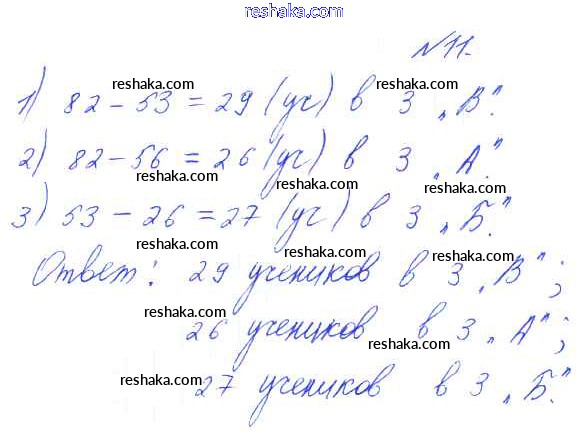 reshaka.com
N11.
1) 82-53=29 (уч) в 3 „В".
reshaka.com reshaka.com
2) 82-56=26 (уч) в 3 „А".
reshaka.com reshaka.com
3) 53-26=27 (уч) в 3 „Б".
reshaka.com reshaka.com
Ответ: 29 учеников в 3 „В";
reshaka.com reshaka.com
26 учеников в 3 „А";
reshaka.com reshaka.com
27 учеников в 3 „Б".
reshaka.com reshaka.com